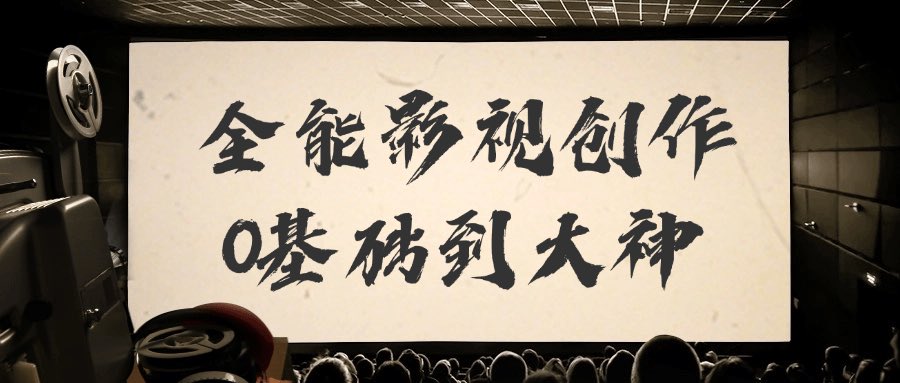 全能影视创作
0基础到大神